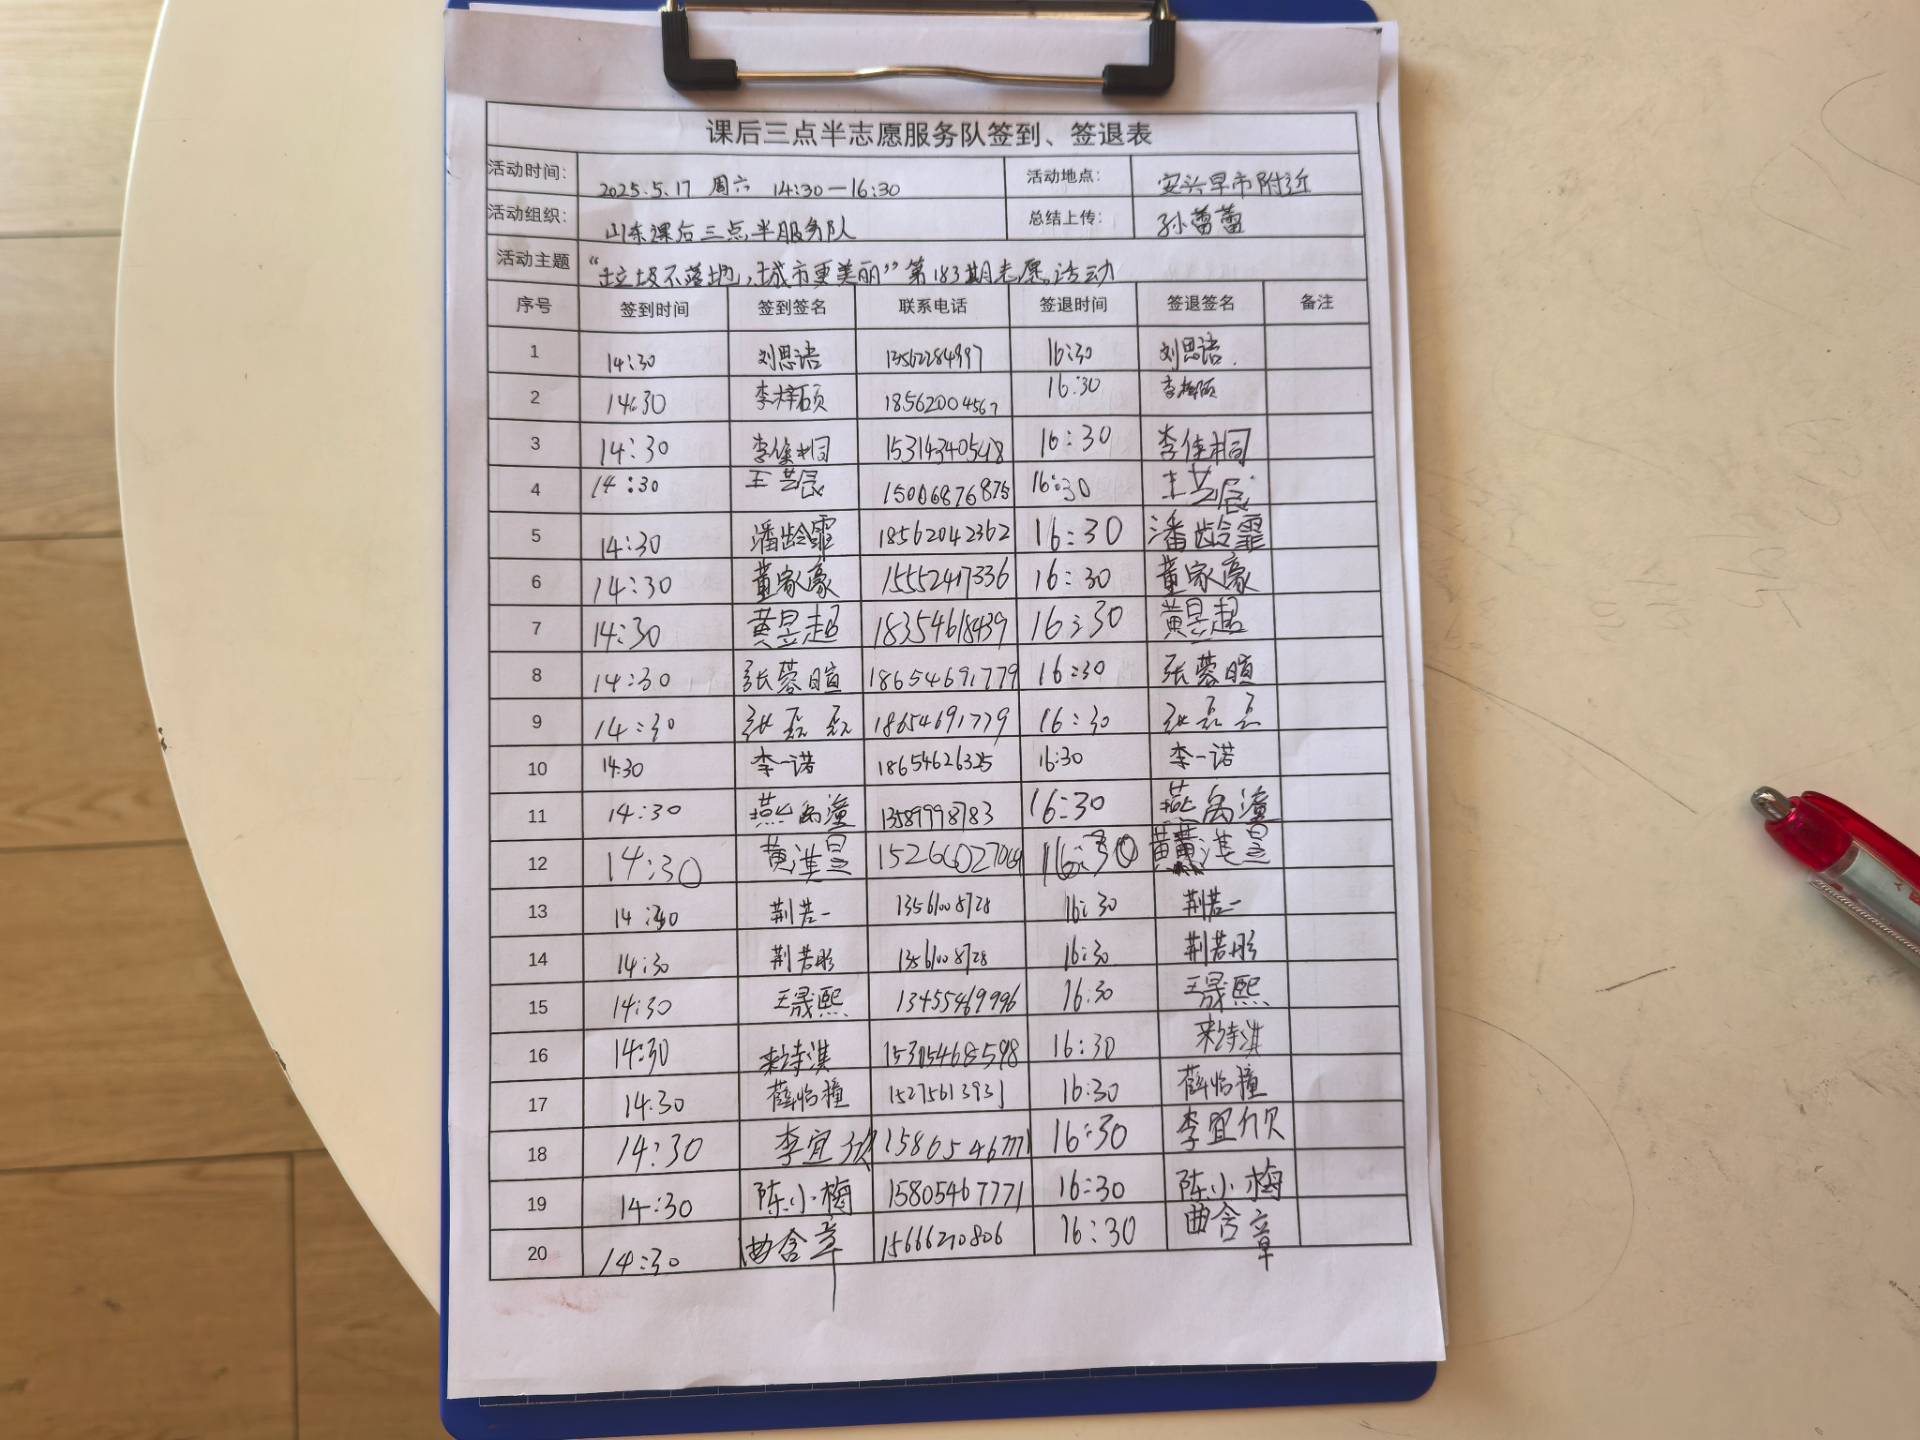 课后三点半志愿服务队签到、签退表
活动时间: 2025.5.17 周六 14:30—16:30 活动地点: 安兴早市附近
活动组织: 山东课后三点半服务队 总结上传: 孙蕾蕾
活动主题 “垃圾不落地,城市更美丽”第183期志愿活动
序号 签到时间 签到签名 联系电话 签退时间 签退签名 备注
1 14:30 刘思语 13562284997 16:30 刘思语.
2 14:30 李梓硕 18562004567 16:30 李梓硕
3 14:30 李佳桐 15314340548 16:30 李佳桐
4 14:30 王芸辰 15006876875 16:30 王芸辰
5 14:30 潘龄霏 18562042362 16:30 潘龄霏
6 14:30 董家豪 15552417336 16:30 董家豪
7 14:30 黄昱超 18354618439 16:30 黄昱超
8 14:30 张蓉暄 18654691779 16:30 张蓉暄
9 14:30 张磊磊 18654691779 16:30 张磊磊
10 14:30 李一诺 18654626325 16:30 李一诺
11 14:30 燕禹潼 13589998783 16:30 燕禹潼
12 14:30 黄淮昱 16:30 黄淮昱
13 14:30 荆若一 13561008728 16:30 荆若一
14 14:30 荆若彤 13561008728 16:30 荆若彤
15 14:30 王晟熙 13455469996 16:30 王晟熙
16 14:30 来诗淇 15315468598 16:30 来诗淇
17 14:30 薛临橦 15275613931 16:30 薛临橦
18 14:30 李宜 16:30 李宜
19 14:30 陈小梅 15805467771 16:30 陈小梅
20 14:30 曲含章 15666210806 16:30 曲含章